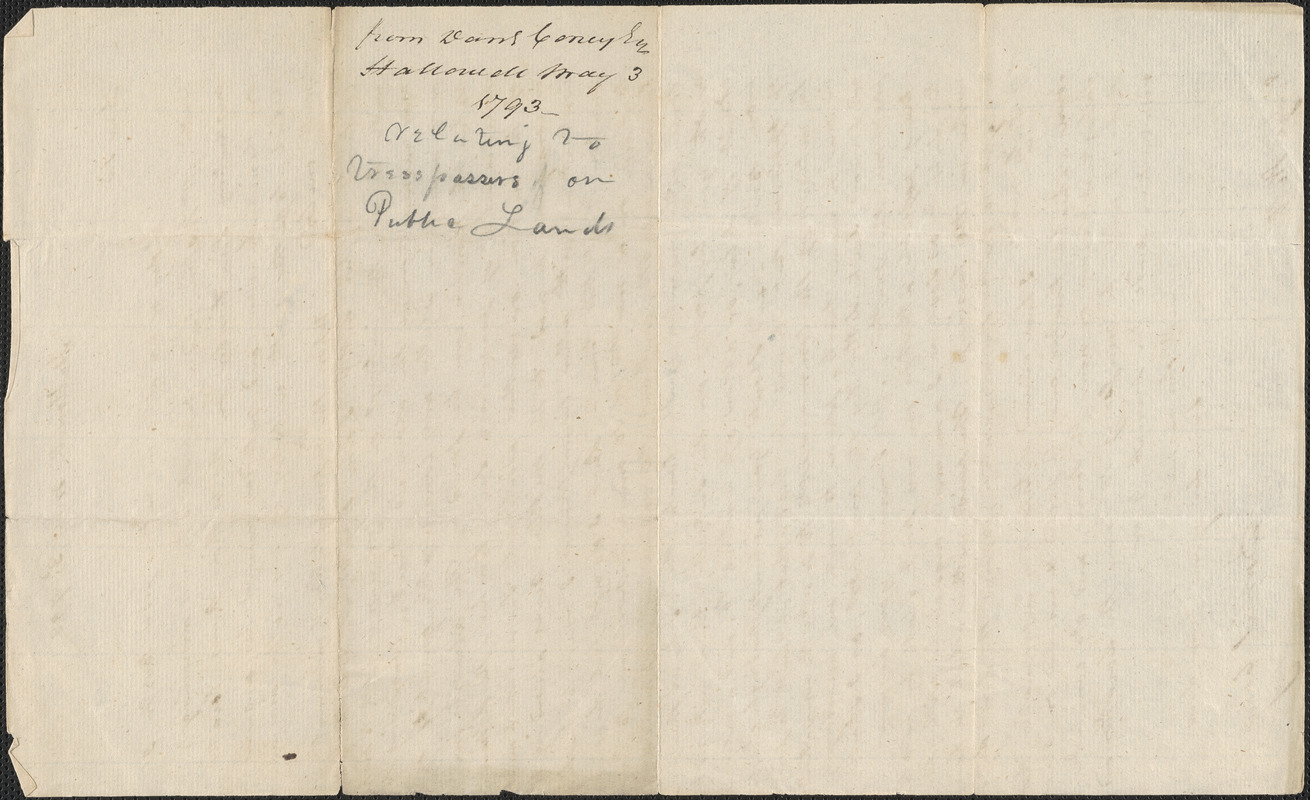 from Danl Coney Esq
Hallowell May 3
1793
relating to
trespassers on
Public Lands